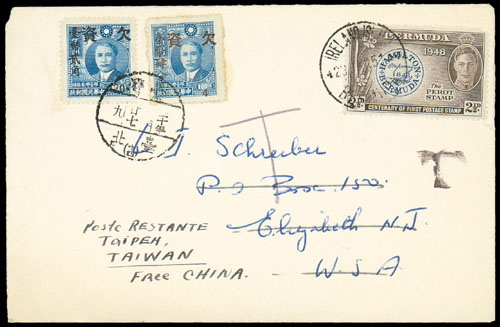 欠 資
欠 資
IRELAND IS
BERMUDA
1948
HAMILTON
BERMUDA
1848
THE
PEROT
STAMP
2½
CENTENARY OF FIRST POSTAGE STAMP
T
J. Schreiber
P.O Box 1500
Elizabeth N.J.
U.S.A
Poste RESTANTE
TAIPEH,
TAIWAN
Free CHINA.